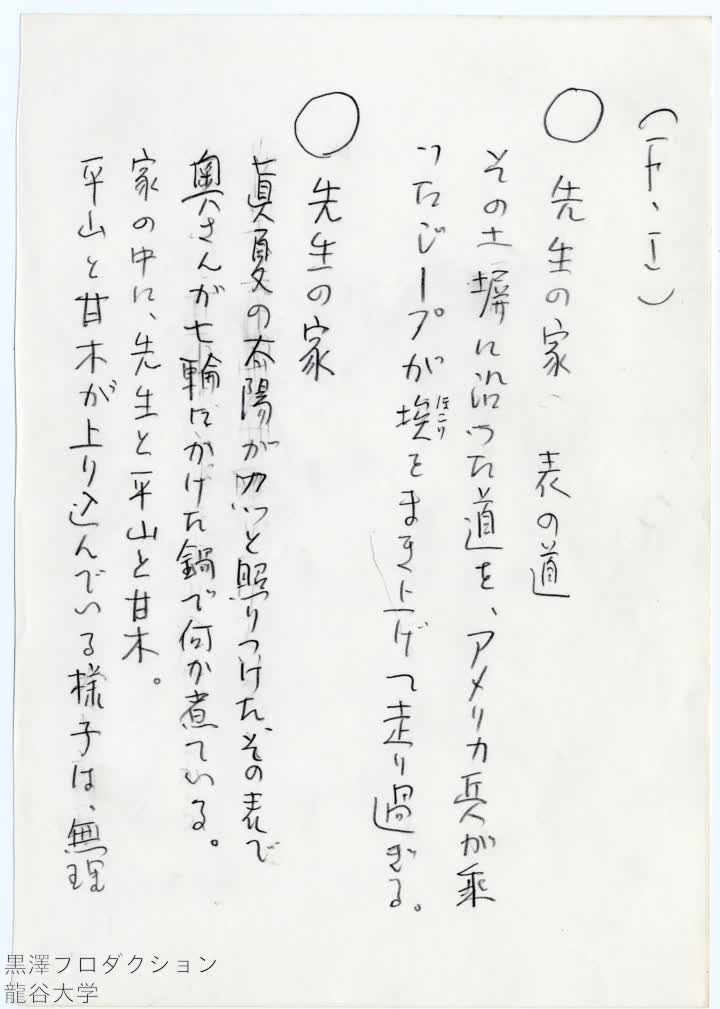 (F・I)
○ 先生の家、表の道
その土塀に沿った道を、アメリカ兵が乗
ったジープが埃をまき上げて走り過ぎる。
ほこり
○ 先生の家
眞夏の太陽がカッと照りつけた、その表で
奥さんが七輪にかけた鍋で何か煮ている。
家の中に、先生と平山と甘木。
平山と甘木が上り込んでいる様子は、無理
黒澤プロダクション
龍谷大学